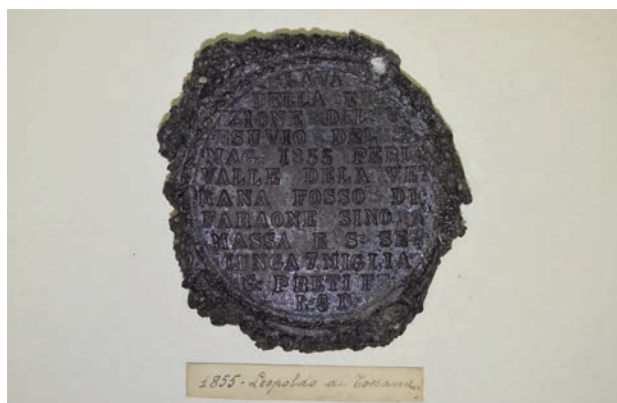 LAVA
DELLA ER
ZIONE DEL V
ESUVIO DEL
MAG: 1855 PERL
VALLE DELA VE
RANA FOSSO DI
FARAONE SINO A
MASSA E S: SE
LUNGA 7 MIGLIA
G: PRETI F
L: S D
1855 - Leopoldo di Toscana